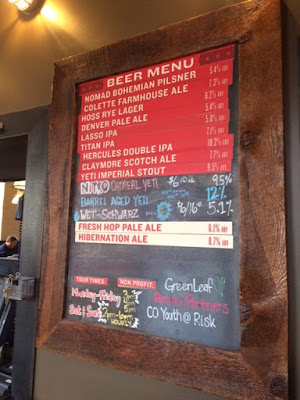 BEER MENU
NOMAD BOHEMIAN PILSNER 5.4% ABV
COLETTE FARMHOUSE ALE 7.3% ABV
HOSS RYE LAGER 6.2% ABV
DENVER PALE ALE 5.4% ABV
LASSO IPA 5.0% ABV
TITAN IPA 7.1% ABV
HERCULES DOUBLE IPA 10.2% ABV
CLAYMORE SCOTCH ALE 7.7% ABV
YETI IMPERIAL STOUT 9.5% ABV
NITRO OATMEAL YETI 9.5%
BARREL AGED YETI 12%
WET-SCHWARZ $6/16oz 5.1%
FRESH HOP PALE ALE 6.1% ABV
HIBERNATION ALE 8.7% ABV
TOUR TIMES
NON PROFIT
Monday-Friday
Sat & Sun
2pm-6pm
HOURLY
GreenLeaf
Partners
CO Youth @ Risk